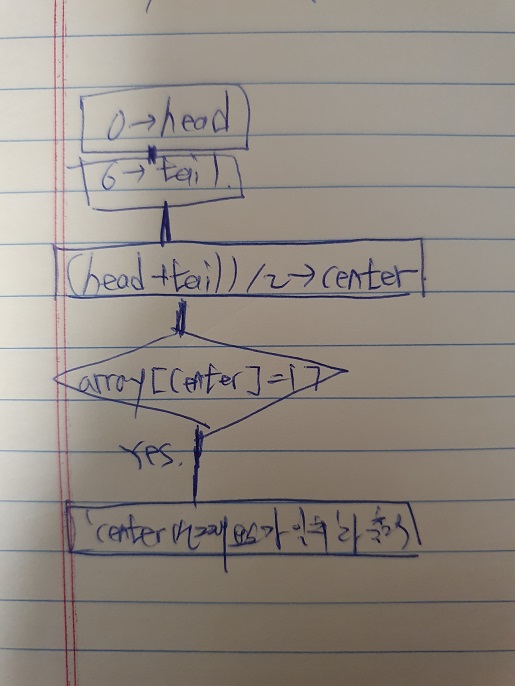 0→head
6→tail
(head+tail)/2→center
array[center]=17
Yes.
'center 번째 요소가 일치'라 출력